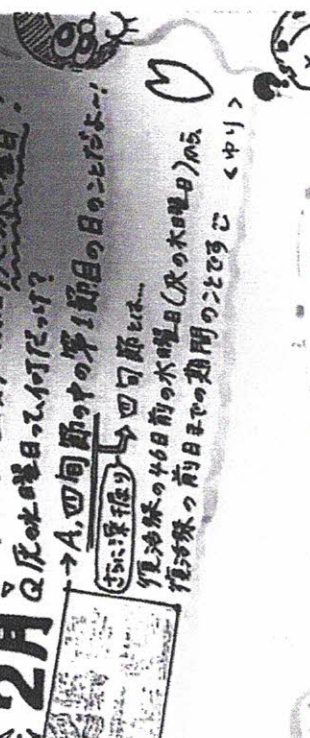 2月
灰の水曜日
Q 灰の水曜日って何だっけ?
→A. 四旬節の中の第1節目の日のことだよ〜!
さらに深掘り→四旬節とは…
復活祭の46日前の水曜日(灰の水曜日)から
復活祭の前日までの期間のことですじ
<ゆり>